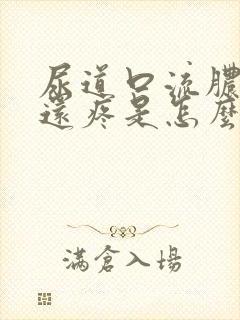 尿道口流膿
還疼是怎麼
滿倉入場